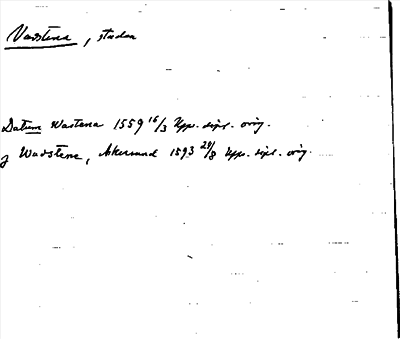 Vadstena, staden
Datum Wastena 1559 16/3 Upps. dipl. orig.
j Wadstena, Akermand 1593 29/8 Upps. dipl. orig.